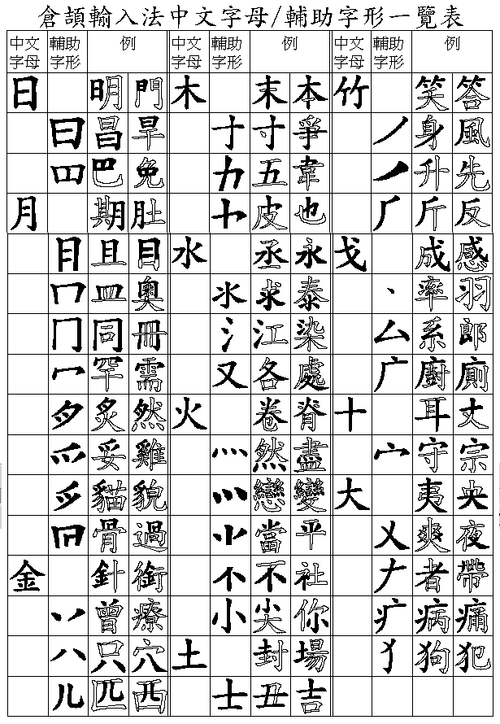 倉頡輸入法中文字母/輔助字形一覽表
中文 輔助 例 中文 輔助 例 中文 輔助 例
字母 字形 字母 字形 字母 字形
日 明 門 木 末 本 竹 笑 答
曰 昌 旱 寸 寸 爭 丿 身 風
巴 免 五 韋 升 先
月 期 肚 皮 也 厂 斤 反
且 目 水 丞 永 戈 成 感
冂 皿 奧 氺 求 泰 丶 率 羽
冂 同 冊 氵 江 染 厶 系 郎
冖 罕 需 又 各 處 广 廚 廁
炙 然 火 卷 脊 十 耳 丈
爫 妥 雞 灬 然 盡 宀 守 宗
貓 貌 戀 變 大 夷 央
骨 過 當 平 乂 爽 夜
金 針 銜 不 社 𠂇 者 帶
丷 曾 療 小 尖 你 疒 病 痛
八 只 穴 土 封 場 犭 狗 犯
儿 匹 西 士 丑 吉